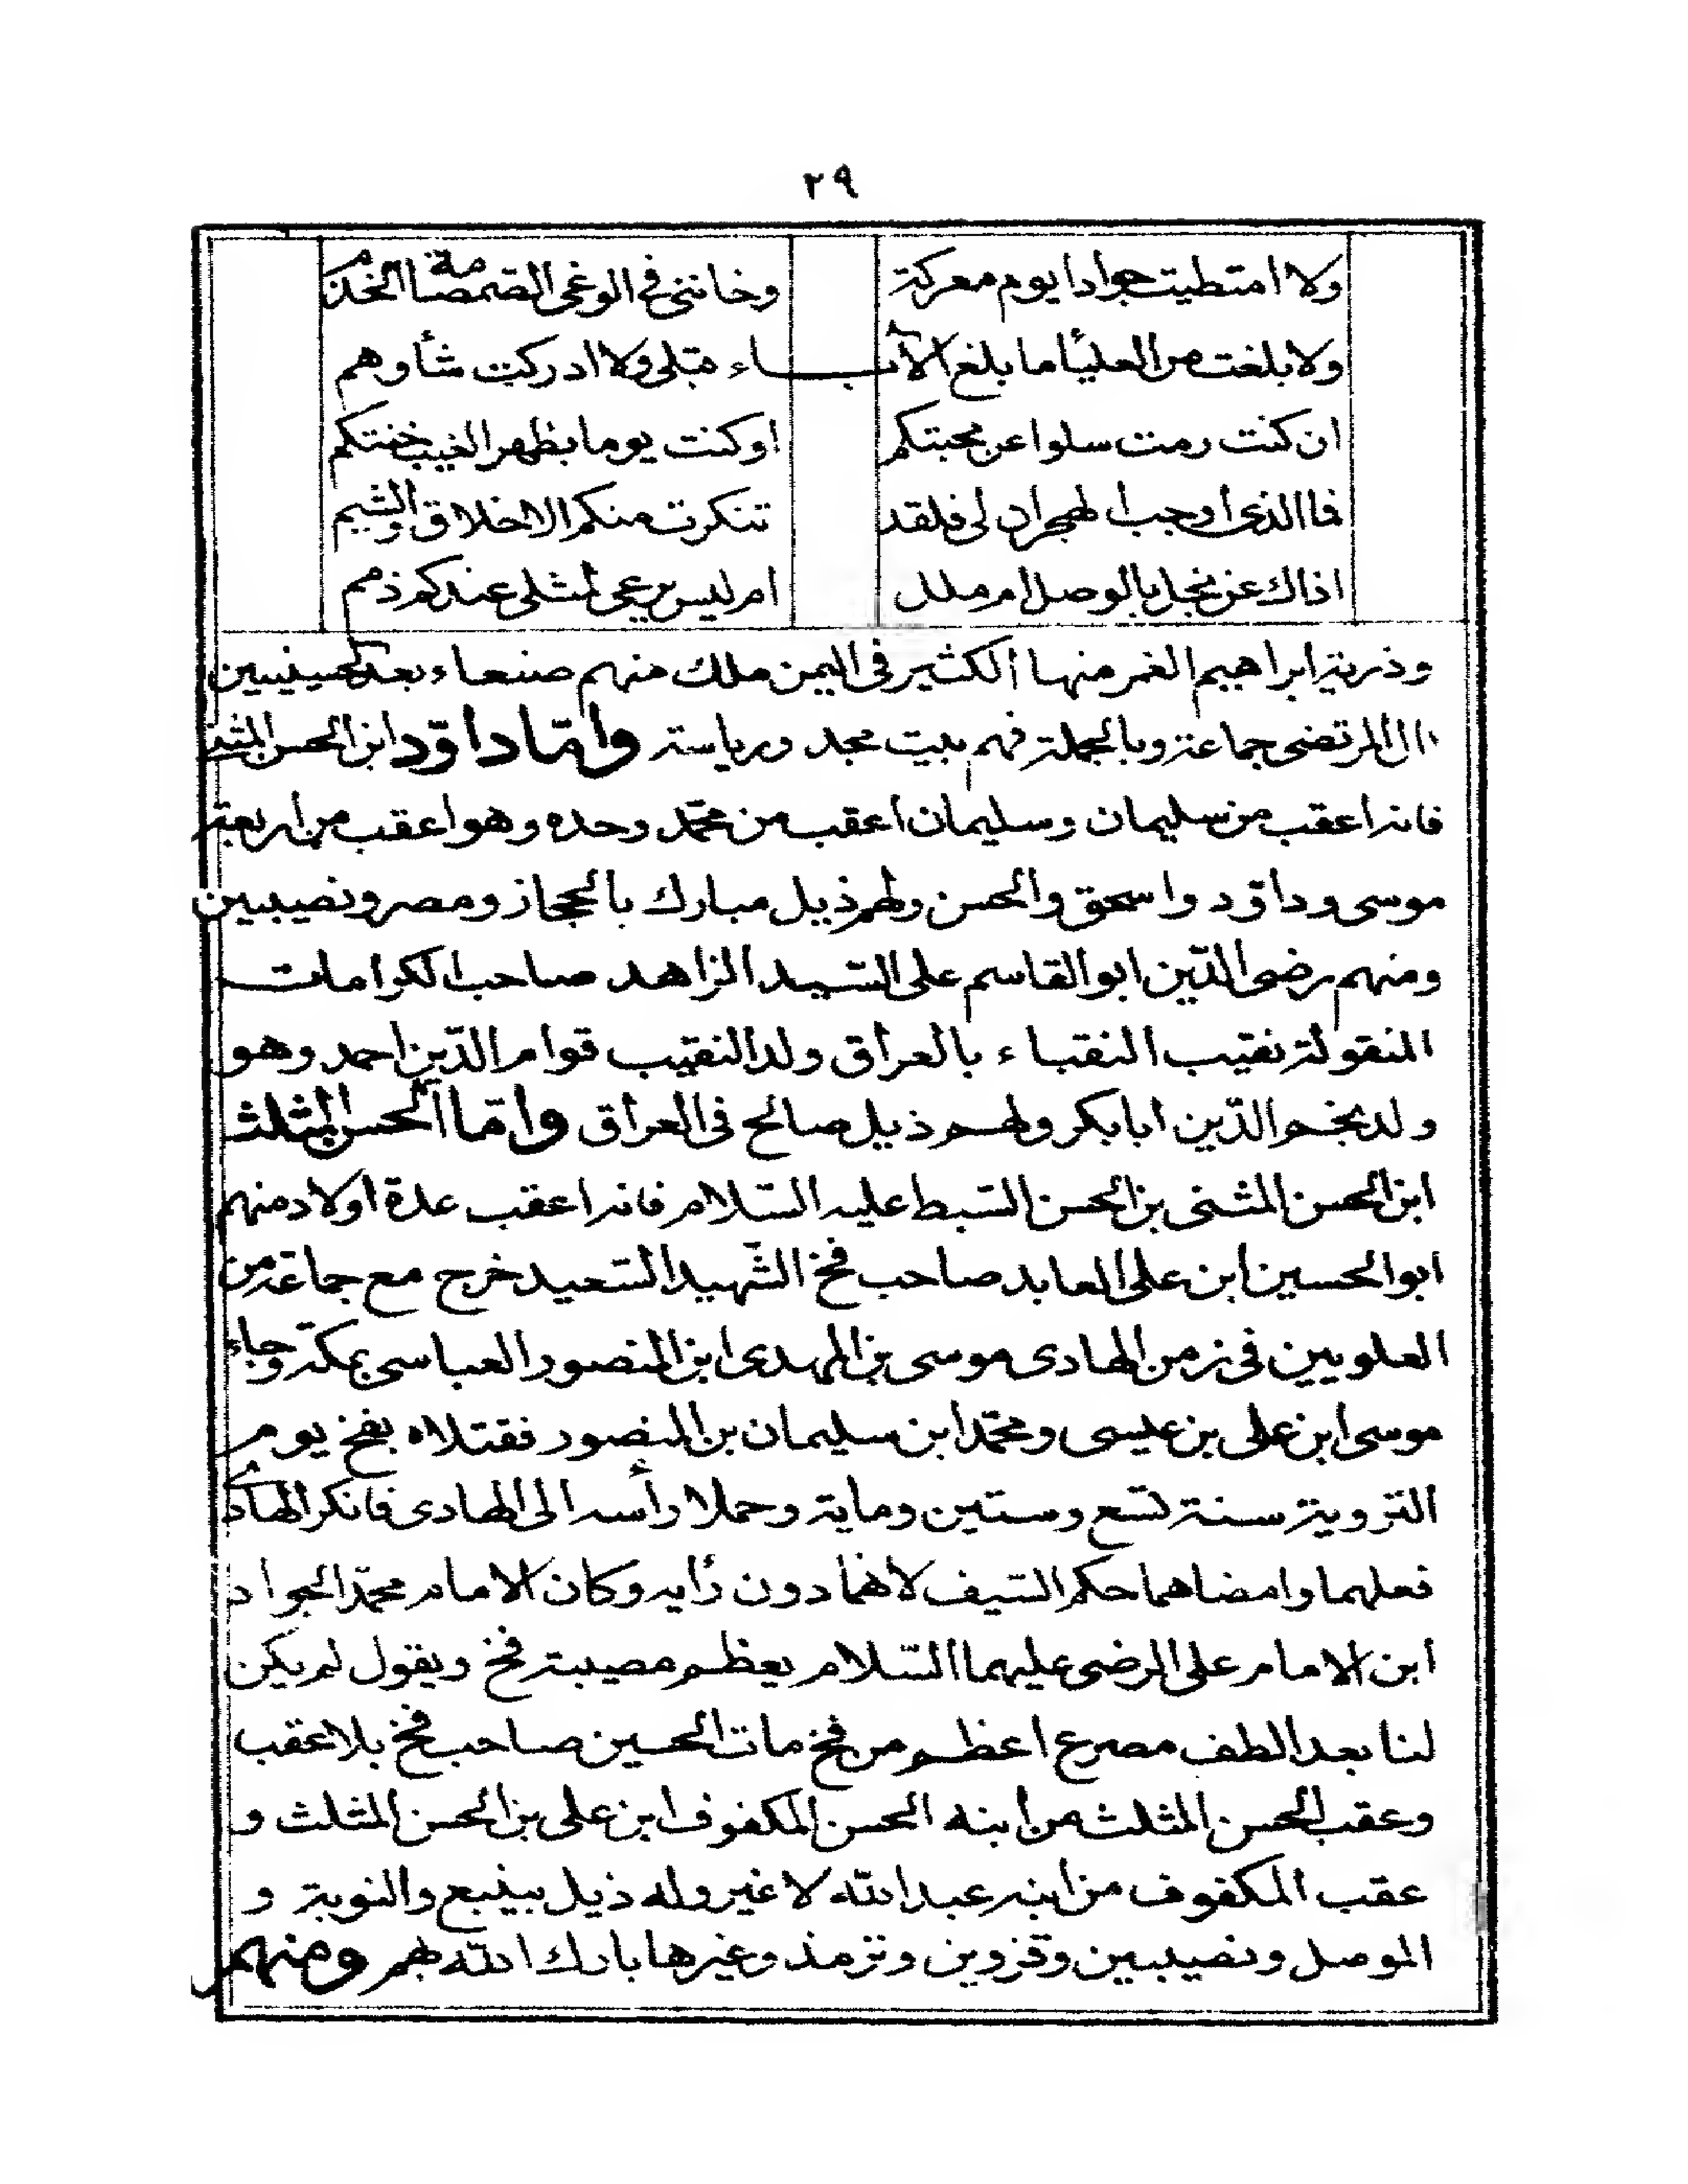 ٢٩
ولا امتطيت جوادا يوم معركة وخاننى فى الوغى الصمصامة الخذم
ولا بلغت من العليأ ما بلغ الآبـــاء قبلى ولا ادركت شأوهم
ان كنت رمت سلوا عن محبتكم اوكنت يوما بظهر الغيب خنتكم
فما الذى أوجب الهجران لى فلقد تنكرت منكم الاخلاق والشيم
اذاك عن نجل بالوصل ام ملل ام ليس يرعى لمثلى عندكم ذمم
وذرية ابراهيم الغمر منها الكثير فى اليمن ملك منهم صنعاء بعد الحسينيين
ال المرتضى جماعة وبالجملة فهم بيت مجد ورياسة وامّا داوٓد ابن الحسن المثنى
فانه اعقب من سليمان وسليمان اعقب من محمّد وحده وهو اعقب من اربعة
موسى وداوٓد واسحق والحسن ولهم ذيل مبارك بالحجاز ومصر ونصيبين
ومنهم رضى الدّين ابو القاسم على السّيد الزاهد صاحب الكرامات
المنقولة نقيب النقباء بالعراق ولد النقيب قوام الدّين احمد وهو
ولد نجم الدّين ابابكر ولهم ذيل صالح فى العراق وامّا الحسن المثلث
ابن الحسن المثنى بن الحسن السّبط عليه السّلام فانه اعقب عدة اولاد منهم
ابو الحسين ابن على العابد صاحب فخ الشّهيد السّعيد خرج مع جماعة من
العلويين فى زمن الهادى موسى بن المهدى ابن المنصور العباسى بمكة وجاء
موسى ابن على بن عيسى ومحمّد ابن سليمان بن المنصور فقتلاه بفخ يوم
التروية سنة تسع وستين وماية وحملا رأسه الى الهادى فانكر الهادى
فعلهما وامضاهما حكم السّيف لانهما دون رأيه وكان الامام محمّد الجواد
ابن الامام على الرضى عليهما السّلام يعظم مصيبة فخ ويقول لم يكن
لنا بعد الطف مصرع اعظم من فخ مات الحسين صاحب فخ بلا عقب
وعقب الحسن المثلث من أبنه الحسن المكفوف ابن على بن الحسن المثلث و
عقب المكفوف من ابنه عبد الله لا غير وله ذيل بينبع والنوبة و
الموصل ونصيبين وقزوين وترمذ وغيرها بارك الله بهم ومنهم